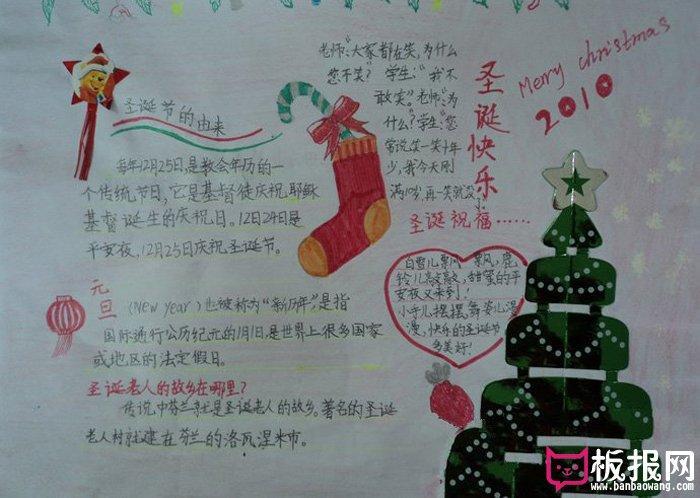 圣诞节的由来
每年12月25日,是教会年历的一
个传统节日,它是基督徒庆祝耶稣
基督诞生的庆祝日。12月24日是
平安夜,12月25日庆祝圣诞节。
老师:"大家都在笑,为什么
您不笑?"学生:"我不
敢笑。"老师:"为
什么?"学生:"您
常说,笑一笑十年
少,我今天刚
满10岁,再一笑就没了
圣诞快乐
Merry christmas
2010
圣诞祝福……
白雪儿飘 飘,鹿
铃儿 ,甜蜜的平
安夜又来到!
小手儿摆摆,舞姿儿漫
漫,快乐的圣诞节
多美好!
元旦
(New year)也被称为"新历年",是指
国际通行公历纪元的1月1日,是世界上很多国家
或地区的法定假日。
圣诞老人的故乡在哪里?
传说中芬兰就是圣诞老人的故乡。著名的圣诞
老人村就建在芬兰的洛瓦涅米市。
板报网
www.banbaowang.com